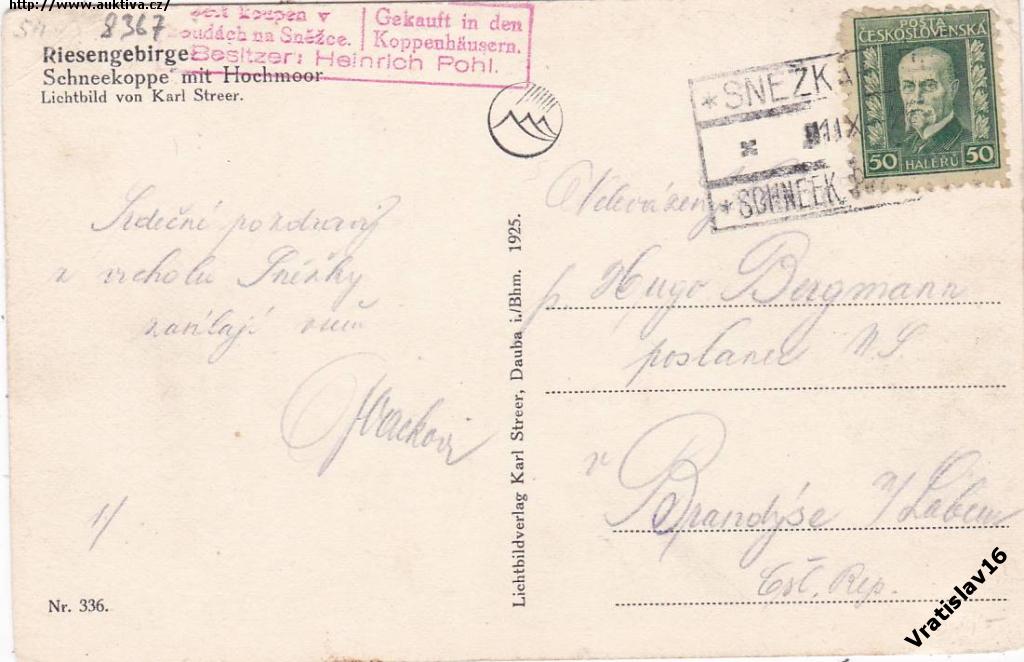 http://www.auktiva.cz/
8367
koupen v
boudách na Sněžce.
Gekauft in den
Koppenhäusern.
Besitzer: Heinrich Pohl.
Riesengebirge
Schneekoppe mit Hochmoor
Lichtbild von Karl Streer.
POŠTA
ČESKOSLOVENSKÁ
50 HALÉŘŮ 50
* SNĚŽKA
IX
* SCHNEEK
Srdečné pozdravy
z vrcholu Sněžky
zasílají
Lichtbildverlag Karl Streer, Dauba i./Bhm. 1925.
p. Hugo Bergmann
poslanec N.S.
v
Brandýse n/Labem
Čsl. Rep.
Nr. 336.
Vratislav16